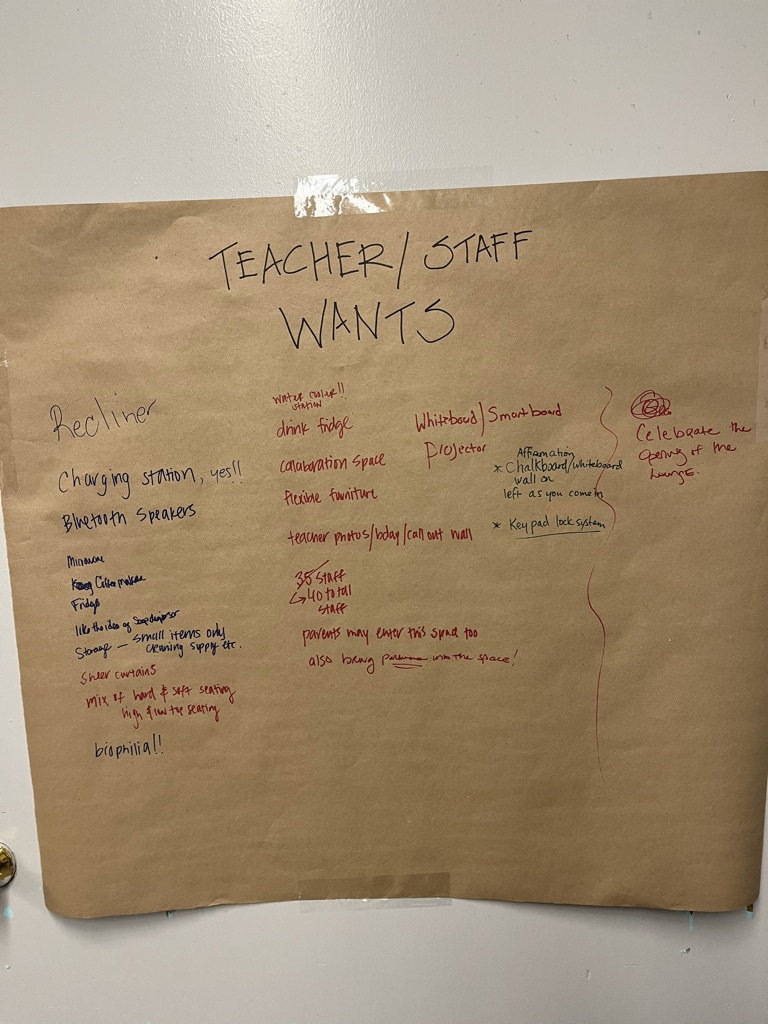 TEACHER/ STAFF
WANTS
Recliner
Charging station, yes!!
Bluetooth Speakers
Microwave
Keurig Coffee maker
Fridge
like the idea of Soap dispenser
Storage — small items only
cleaning supply etc.
sheer curtains
mix of hard & soft seating
high & low top seating
biophilia!!
water cooler!!
station
drink fridge
collaboration space
flexible furniture
teacher photos/bday/call out wall
35 staff
↳ 40 total
staff
parents may enter this space too
also bring into the space!
Whiteboard/Smartboard
Projector
Affirmation
* Chalkboard/whiteboard
wall on
left as you come in
* Key pad lock system
Celebrate the
opening of the
Lounge.